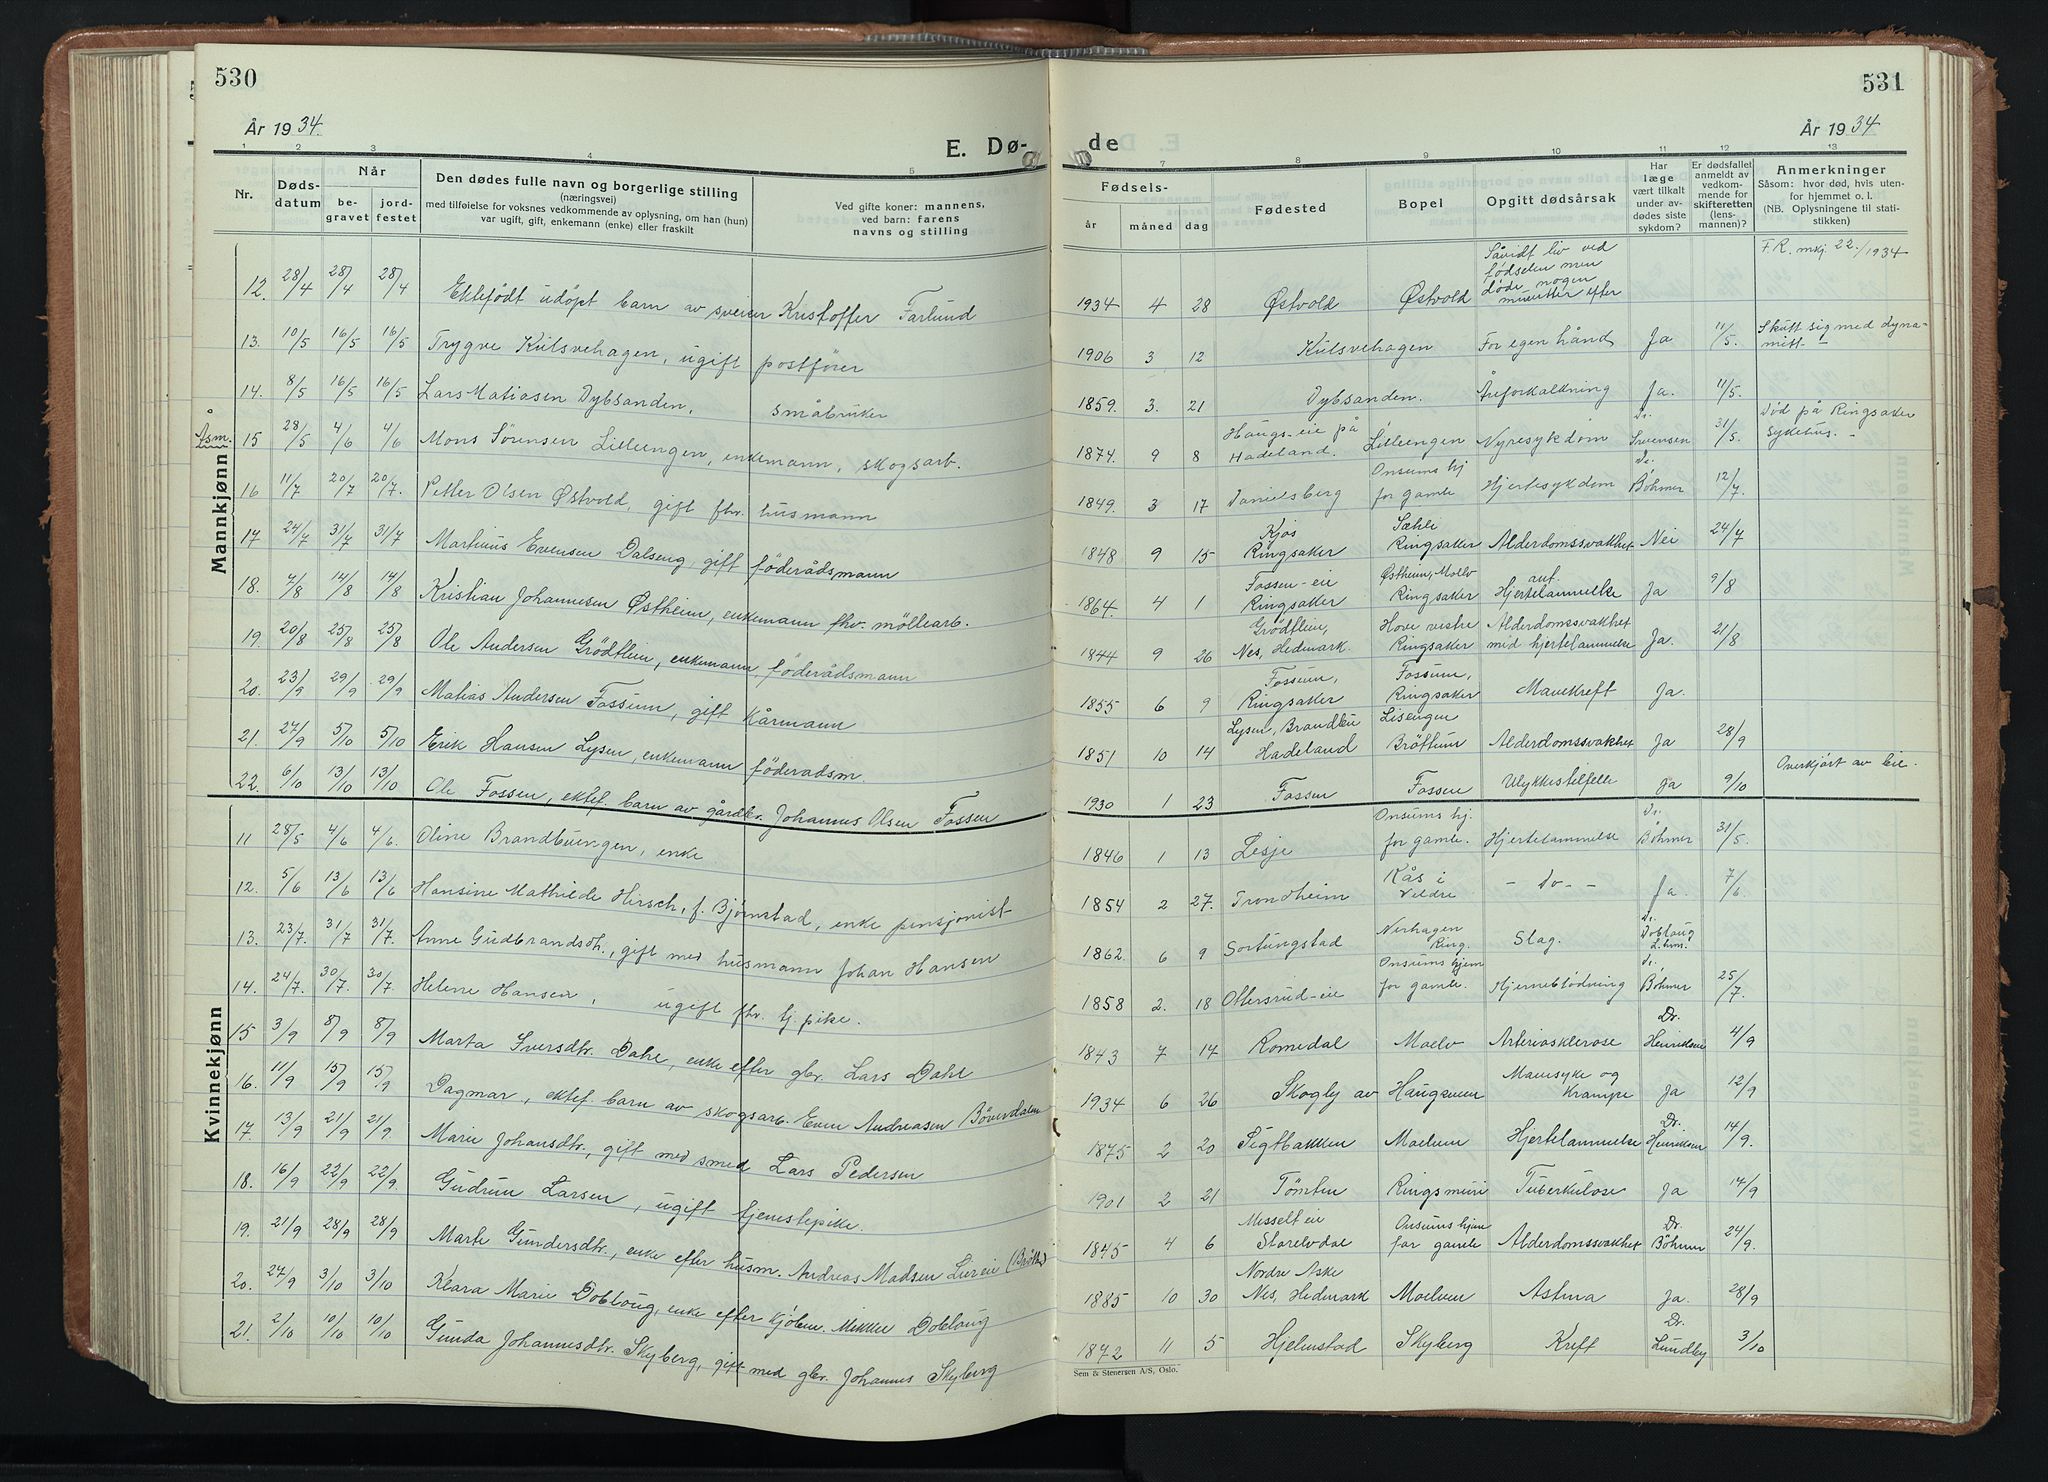 530
År 1934.
E. Dø-
1 2 3 4 5
Nr.
Døds-
datum
Når
be-
gravet
jord-
festet
Den dødes fulle navn og borgerlige stilling
(næringsvei)
med tilføielse for voksnes vedkommende av oplysning, om han (hun)
var ugift, gift, enkemann (enke) eller fraskilt
Ved gifte koner: mannens,
ved barn: farens
navns og stilling
Mannkjønn
Asm.
12. 28/4 28/4 28/4 Ektefödt udöpt barn av sveiser Kristoffer Farlund
13. 10/5 16/5 16/5 Trygve Kulsvehagen, ugift postförer
14. 8/5 16/5 16/5 Lars Matiasen Dybsanden, småbruker
15 28/5 4/6 4/6 Mons Sörensen Lilleengen, enkemann, skogsarb.
16 11/7 20/7 20/7. Petter Olsen Østvold, gift fhv. husmann
17 24/7 31/7 31/7 Martinus Evensen Dalseng, gift föderådsmann
18. 7/8 14/8 14/8 Kristian Johannesen Østheim, enkemann fhv. möllearb.
19. 20/8 25/8 25/8 Ole Andersen Grödtlein, enkemann, föderådsmann
20. 23/9 29/9 29/9 Matias Andersen Fossum, gift kårmann
21. 27/9 5/10 5/10 Erik Hansen Lysen, enkemann föderadsm.
22. 6/10 13/10 13/10 Ole Fossen, ektef. barn av gårdbr. Johannes Olsen Fossen
Kvinnekjønn
11 28/5 4/6 4/6. Oline Brandbuengen, enke
12. 5/6 13/6 13/6 Hansine Mathilde Hirsch, f. Bjørnstad, enke pensjonist
13. 23/7. 31/7 31/7. Anne Gudbrandsdt., gift med husmann Johan Hansen
14. 24/7. 30/7. 30/7. Helene Hansen, ugift fhv. tj. pike.
15 3/9 8/9 8/9 Marta Iversdtr. Dahl, enke efter gbr. Lars Dahl
16. 11/9 15/9 15/9 Dagmar, ektef. barn av skogsarb. Even Andreasen Böverdalen
17. 13/9 21/9 21/9. Marie Johansdtr., gift med smed Lars Pedersen
18. 16/9 22/9 22/9. Gudrun Larsen, ugift tjenestepike.
19. 21/9 28/9 28/9 Marte Gundersdtr., enke efter husm. Andreas Madsen Liereie
20. 27/9 3/10 3/10 Klara Marie Dobloug, enke efter kjöbm. Mikkel Dobloug
21. 2/10 10/10 10/10 Gunda Johannesdtr. Skyberg, gift med gbr. Johannes Skyberg
531
År 1934
de
7 8 9 10 11 12 13
Fødsels-
år måned dag
Fødested
Bopel
Opgitt dødsårsak
Har
læge
vært tilkalt
under av-
dødes siste
sykdom?
Er dødsfallet
anmeldt av
vedkom-
mende for
skifteretten
(lens-
mannen)?
Anmerkninger
Såsom: hvor død, hvis uten-
for hjemmet o. l.
(NB. Oplysningene til stati-
stikken)
1934 4 28 Østvold Østvold Såvidt liv ved
födselen men
döde nogen
minutter efter F.R. mkj. 22./1934
1906 3 12 Kulsvehagen For egen hånd Ja 11/5. Skutt sig med dyna-
mitt -
1859. 3. 21 Dybsanden. Åreforkalkning Ja. 11/5.
1874. 9 8 Haugs-eie på
Hadeland. Lilleengen Nyresykdom Dr.
Svensen 31/5. Död på Ringsaker
Sykehus. -
1849. 3 17 Danielsberg Onsums hj
for gamle Hjertesykdom Dr.
Böhmer 12/7.
1848 9 15 Kjos
Ringsaker Sæhle
Ringsaker Alderdomssvakhet Nei 24/7
1864 4 1 Fossen-eie
Ringsaker Østheim, Moelv
Ringsaker ant.
Hjertelammelse Ja 9/8
1844 9 26 Grödtlein,
Nes, Hedmark. Hove vestre
Ringsaker Alderdomssvakhet
med hjertelammelse Ja. 21/8
1855 6 9 Fossum,
Ringsaker Fossum,
Ringsaker Mavekreft Ja.
1851 10 14 Lysen, Brandbu
Hadeland Lisengen
Bröttum Alderdomssvakhet Ja 28/9
1930 1 23 Fossen Fossen Ulykkestilfelle Ja 9/10 Overkjört av bil.
1846 1 13 Lesje Onsums hj.
for gamle. Hjertelammelse Dr.
Böhmer 31/5.
1854 2 27. Trondheim Kås i
Veldre - Do - - Ja. 7/6
1862. 6 9 Sorlungstad Nerhagen
Ring. Slag. Dr.
Dobloug
1858 2. 18 Ottersrud-eie Onsums hjem
for gamle. Hjerneblödning Dr.
Böhmer 25/7
1843 7 17 Romedal Moelv Arteriosklerose Dr.
Henriksen 4/9
1934 6 26 Skogly av Haugsveen Mavesyke og
Krampe Ja 12/9
1875 2 20 Sigtbakken Moelven Hjertelammelse Dr.
Henriksen 14/9.
1901 2 21 Tömten Ringsmuri Tuberkulose Ja 14/9
1845 4 6 Messelt eie
Storelvdal Onsums hjem
for gamle Alderdomssvakhet Dr.
Böhmer 24/9.
1885 10 30 Nordre Aske
Nes, Hedmark Moelven Astma Ja. 28/9
1872 11 5 Hjelmstad Skyberg Kreft Dr.
Lundby 3/10
Sem & Stenersen A/S, Oslo.